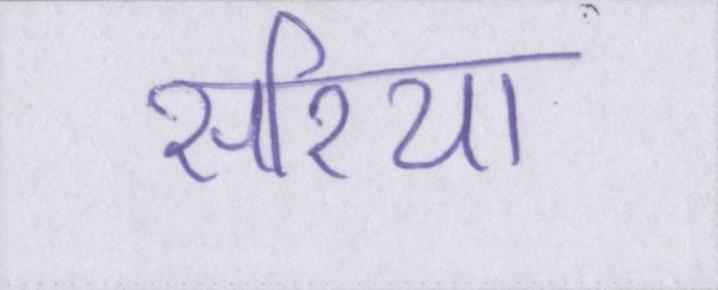 सरिया